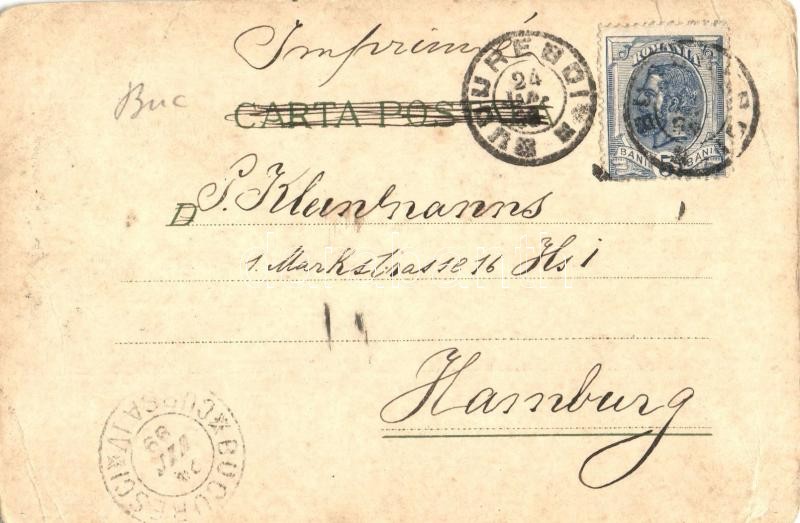 Imprimé
Buc
CARTA POSTALA
BUCURESCI
24
ROMANIA
BANI 5 BANI
D P. Kleinhanns
1. Markstrasse 16 Hs 1
Hamburg
BUCURESCI
CURSA IV
99